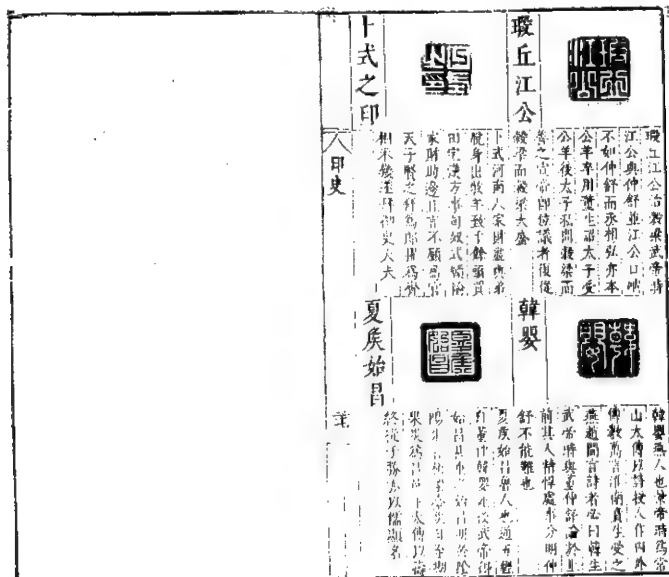 瑕丘江公
瑕丘江公治穀梁武帝時
江公與仲舒並江公口吶
不如仲舒而丞相弘亦本
公羊卒用董生詔太子受
公羊後太子私問穀梁而
善之宣帝即位議者復從
穀梁而穀梁大盛
卜式之印
卜式河南人家田畜與弟
脫身出牧羊致千餘頭買
田宅漢方事匈奴式願輸
家財助邊且言不願為官
天子賢之拜為郎擢為齊
相未幾遂拜御史大夫
韓嬰
韓嬰燕人也景帝時為常
山太傅以詩授人作內外
傳數萬言淮南賁生受之
燕趙間言詩者必曰韓生
武帝時與董仲舒論於上
前其人精悍處事分明仲
舒不能難也
夏矦始昌
夏矦始昌魯人也通五經
自董仲韓嬰死後武帝得
始昌甚重之始昌明於陰
陽
果災為昌邑王太傅以壽
終從子勝亦以儒顯名
印史